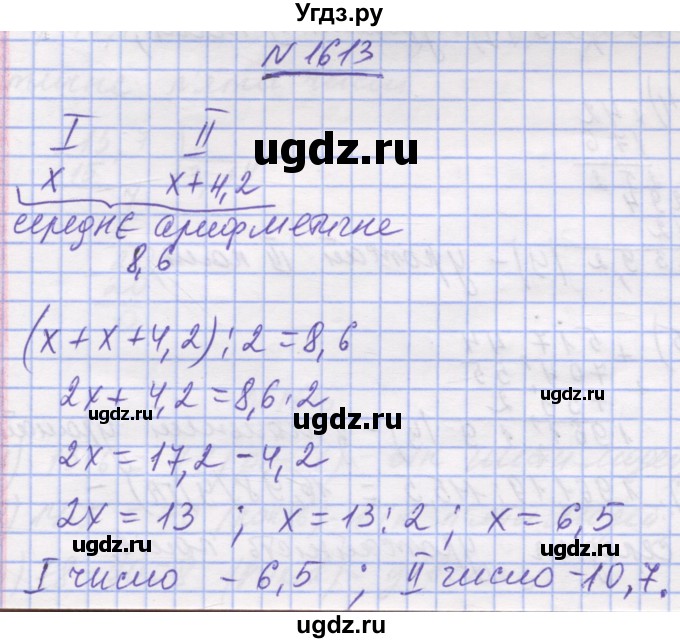 Угдз.ру
N 1613
I II
x x+4,2
середнє арифметичне
8,6
ugdz.ru
(x + x + 4,2) : 2 = 8,6
2x + 4,2 = 8,6 · 2
ugdz.ru ugdz.ru
2x = 17,2 - 4,2
ugdz.ru
2x = 13 ; x = 13 : 2 ; x = 6,5
ugdz.ru ugdz.ru
I число - 6,5 ; II число - 10,7.
ugdz.ru
ugdz.ru